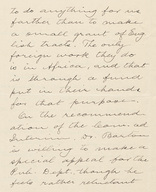 to do anything for us
farther than to make
a small grant of Eng
lish tracts. The only
foreign work they do
is in Africa, and that
is through a fund
put in their hands
for that purpose.
On the recommend
ation of the Com. ad
Interim, Dr. Barbour
is willing to make a
special appeal for the
Pub. Dept. though he
feels rather reluctant